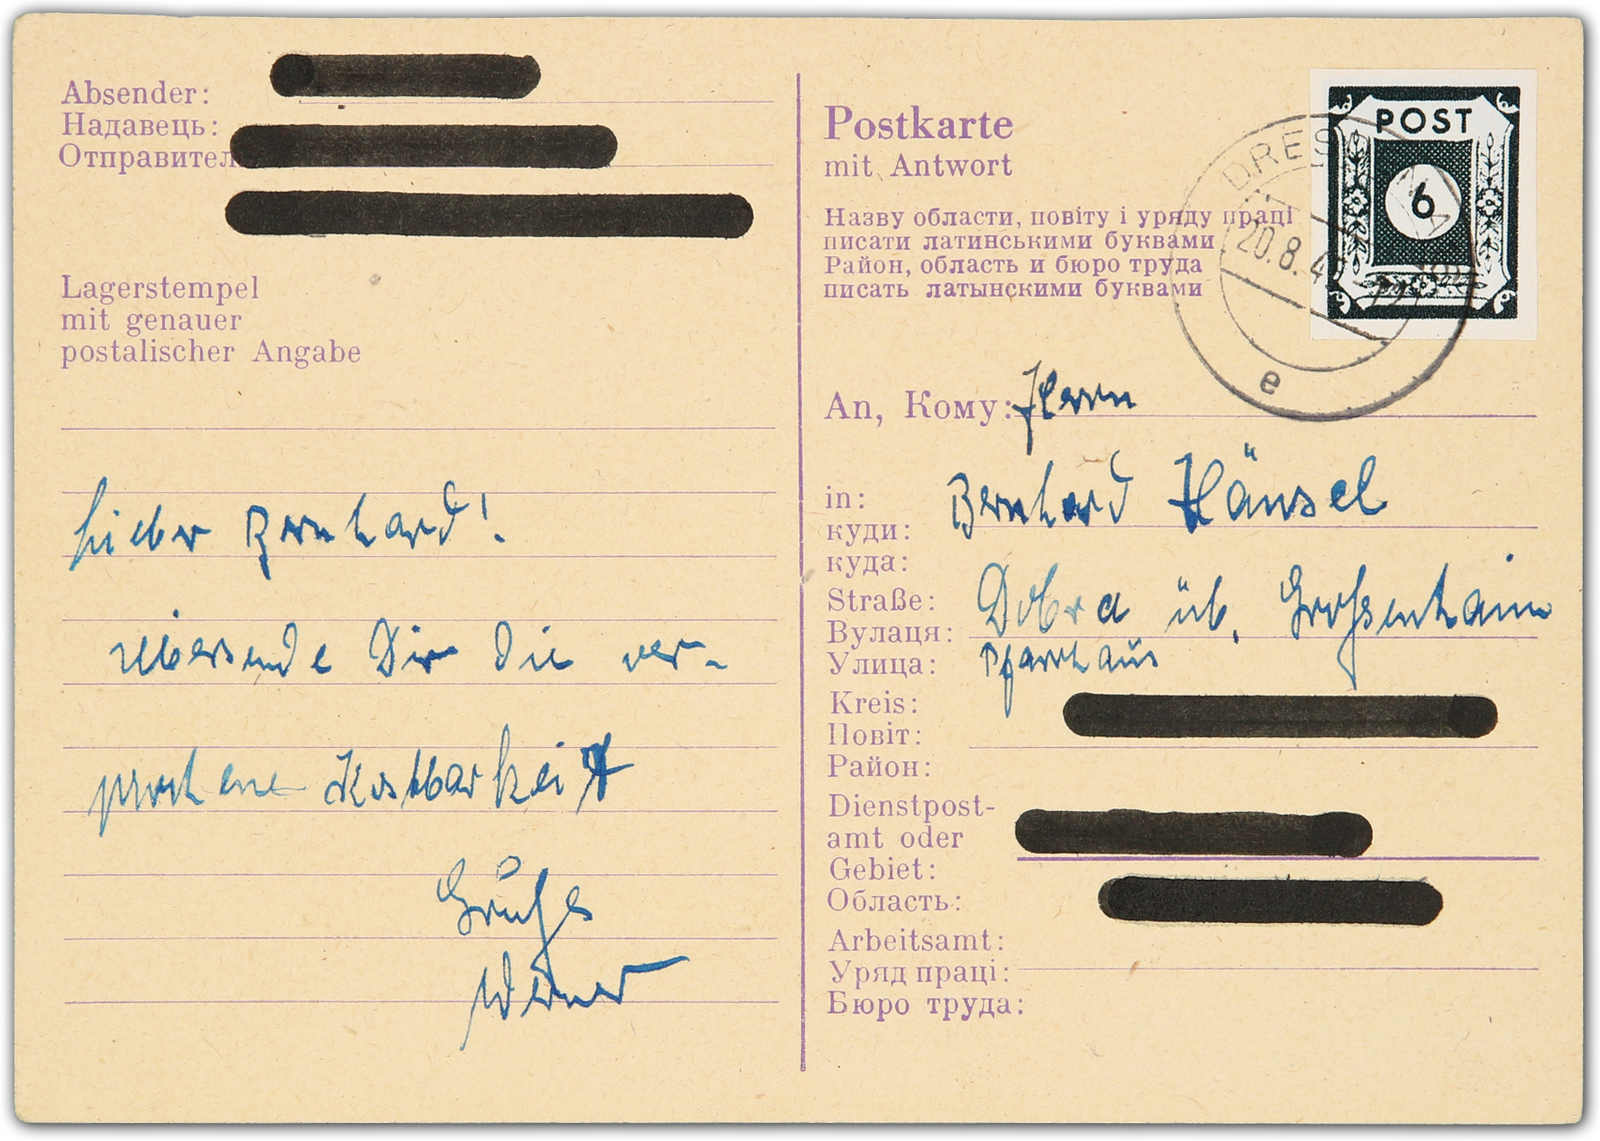 Absender:
Надавець:
Отправител
Lagerstempel
mit genauer
postalischer Angabe
Lieber Bernhard!
Übersende Dir die ver-
sprochene Kostbarkeit
Grüße
Werner
Postkarte
mit Antwort
Назву области, повіту і уряду праці
писати латинськими буквами
Район, область и бюро труда
писать латынскими буквами
POST
6
DRES
20.8.4
e
An, Кому: Herrn
in: Bernhard Hänsel
куди:
куда:
Straße: Dobra üb. Großenhain
Вулаця: Pfarrhaus
Улица:
Kreis:
Повіт:
Район:
Dienstpost-
amt oder
Gebiet:
Область:
Arbeitsamt:
Уряд праці:
Бюро труда: